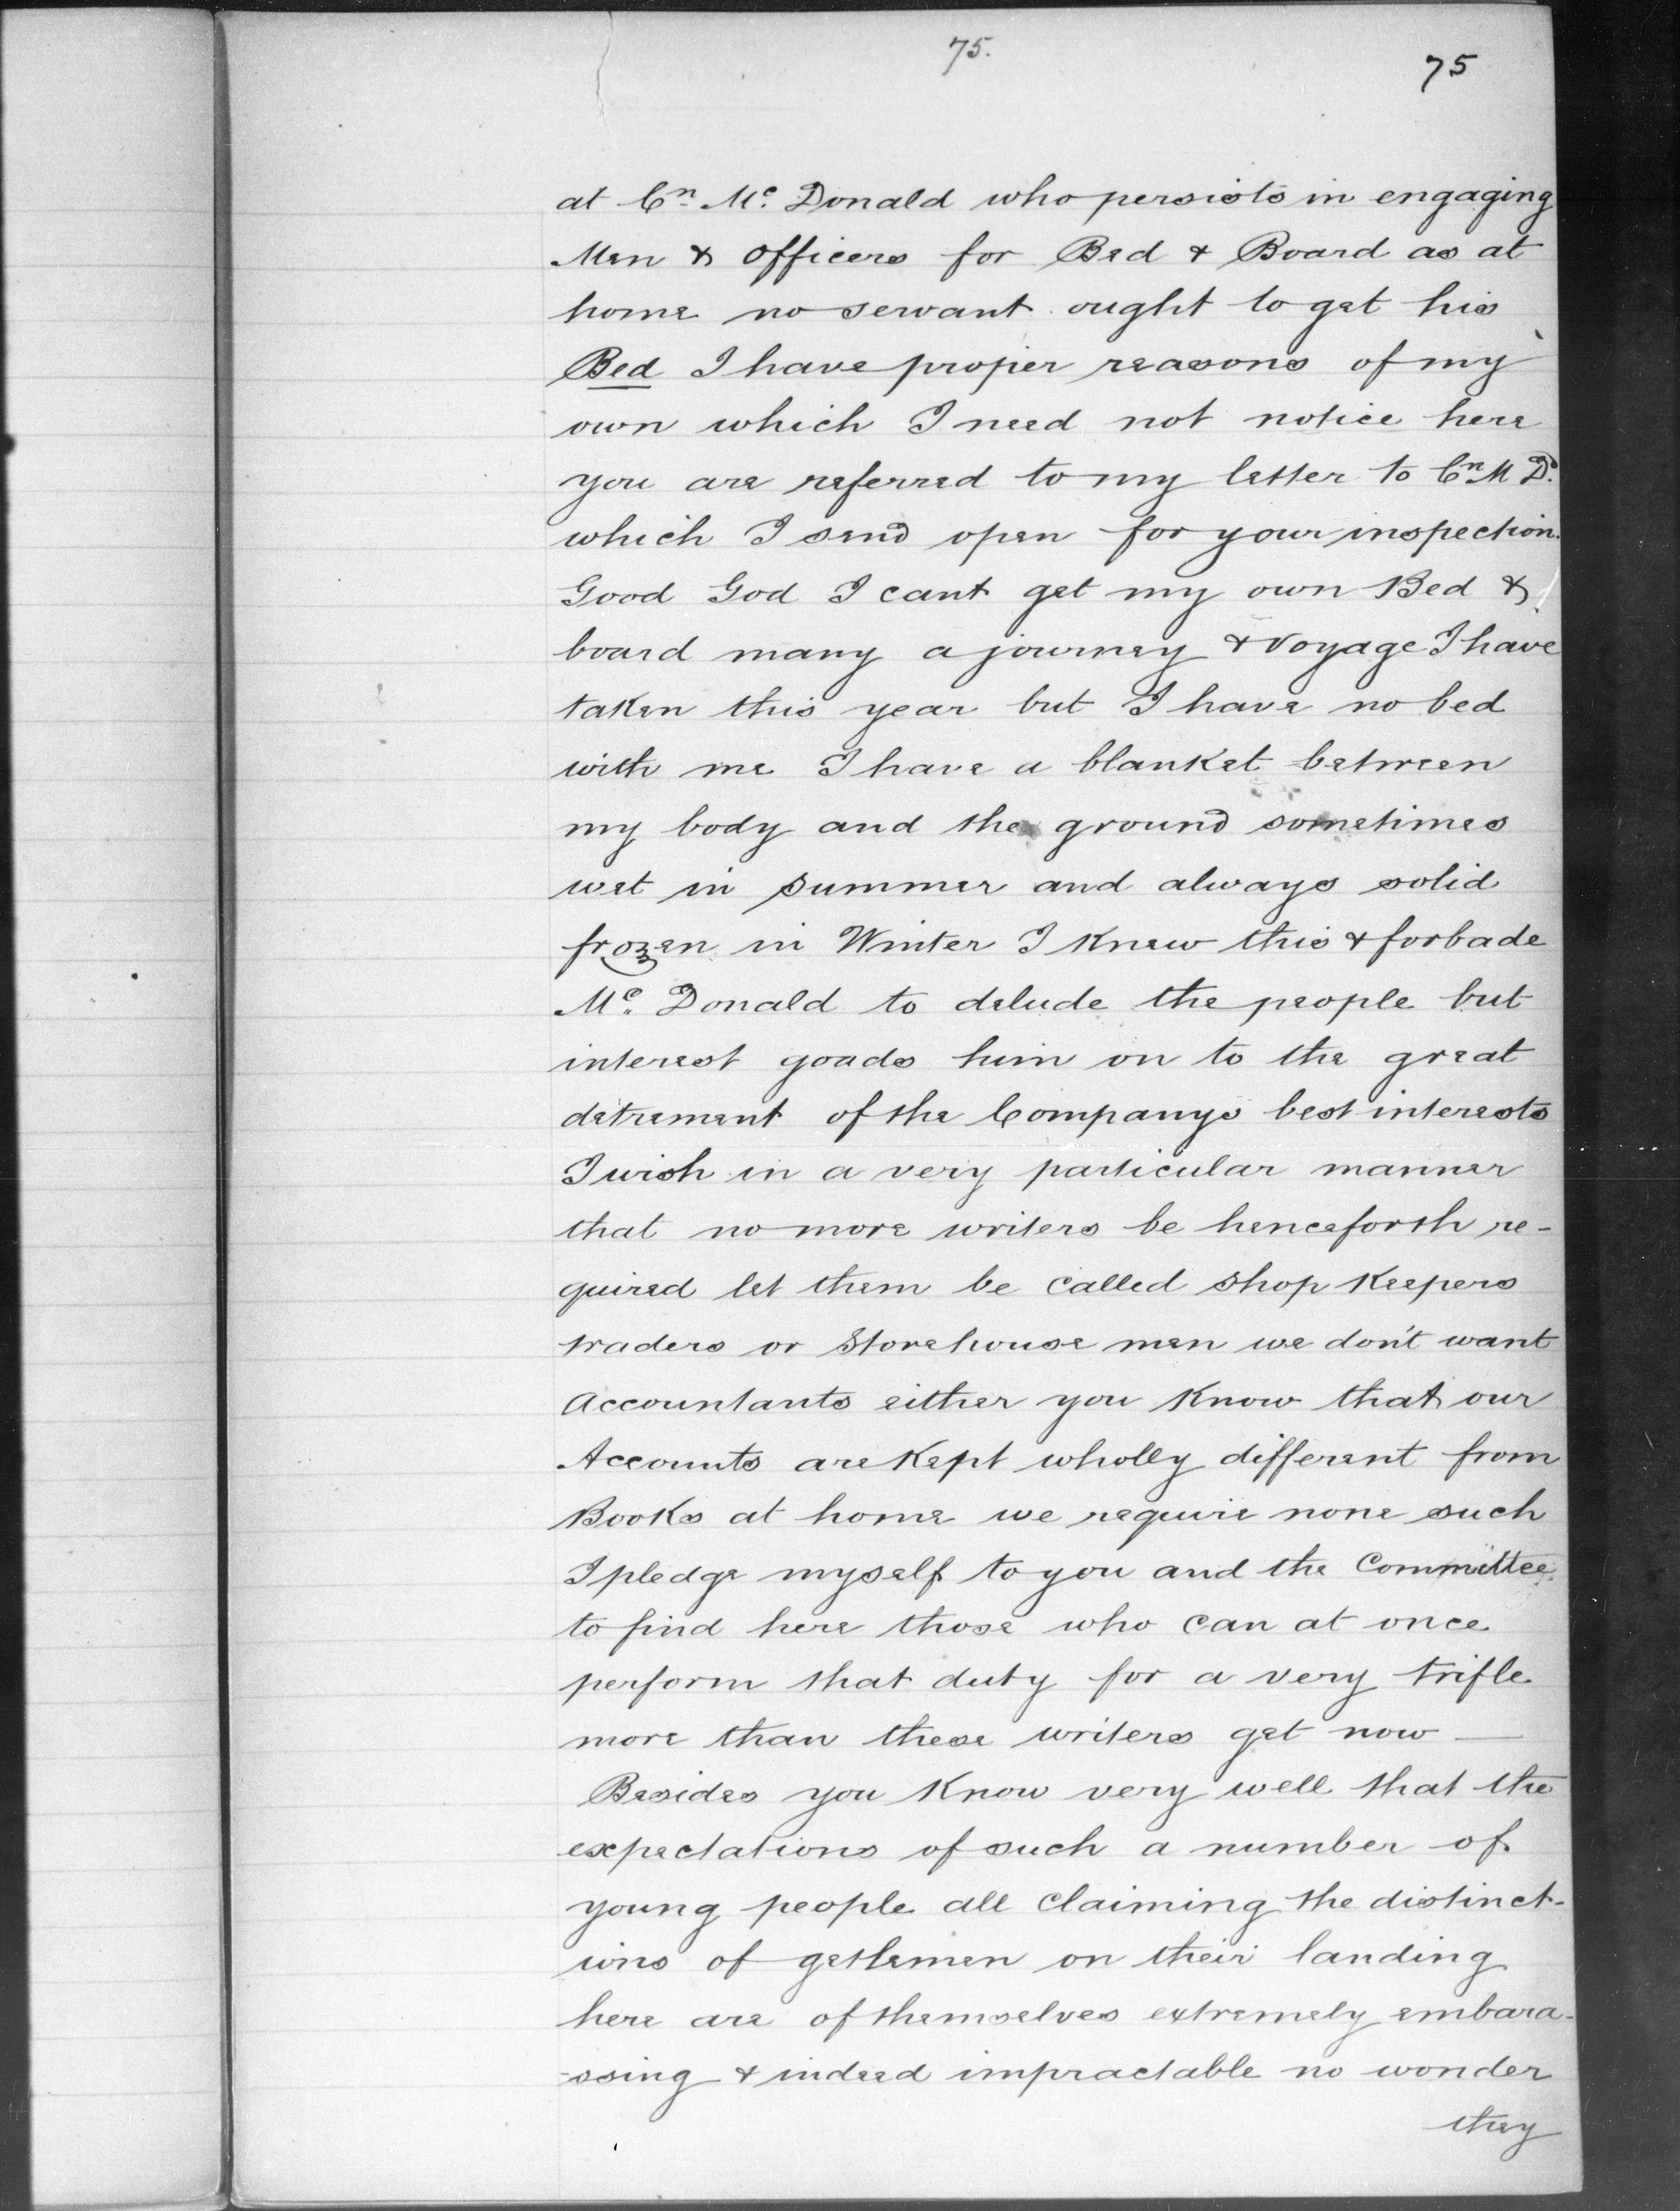 75.
75
at Cn. Mc. Donald who persists in engaging
Men & officers for Bed & Board as at
home no servant ought to get his
Bed I have proper reasons of my
own which I need not notice here
you are referred to my letter to Cn M D.
which I send open for your inspection.
Good God I cant get my own Bed &
board many a journey & voyage I have
taken this year but I have no bed
with me I have a blanket between
my body and the ground sometimes
wet in summer and always solid
frozen in Winter I knew this & forbade
Mc. Donald to delude the people but
interest goads him on to the great
detrement of the Companys best interests
I wish in a very particular manner
that no more writers be henceforth re-
quired let them be called shop keepers
traders or Storehouse men we don't want
accountants either you know that our
Accounts are kept wholly different from
Books at home we require none such
I pledge myself to you and the Committee
to find here those who can at once
perform that duty for a very trifle
more than these writers get now —
Besides you know very well that the
expectations of such a number of
young people all claiming the distinct-
ions of getlemen on their landing
here are of themselves extremely embara-
-ssing & indeed impractable no wonder
they